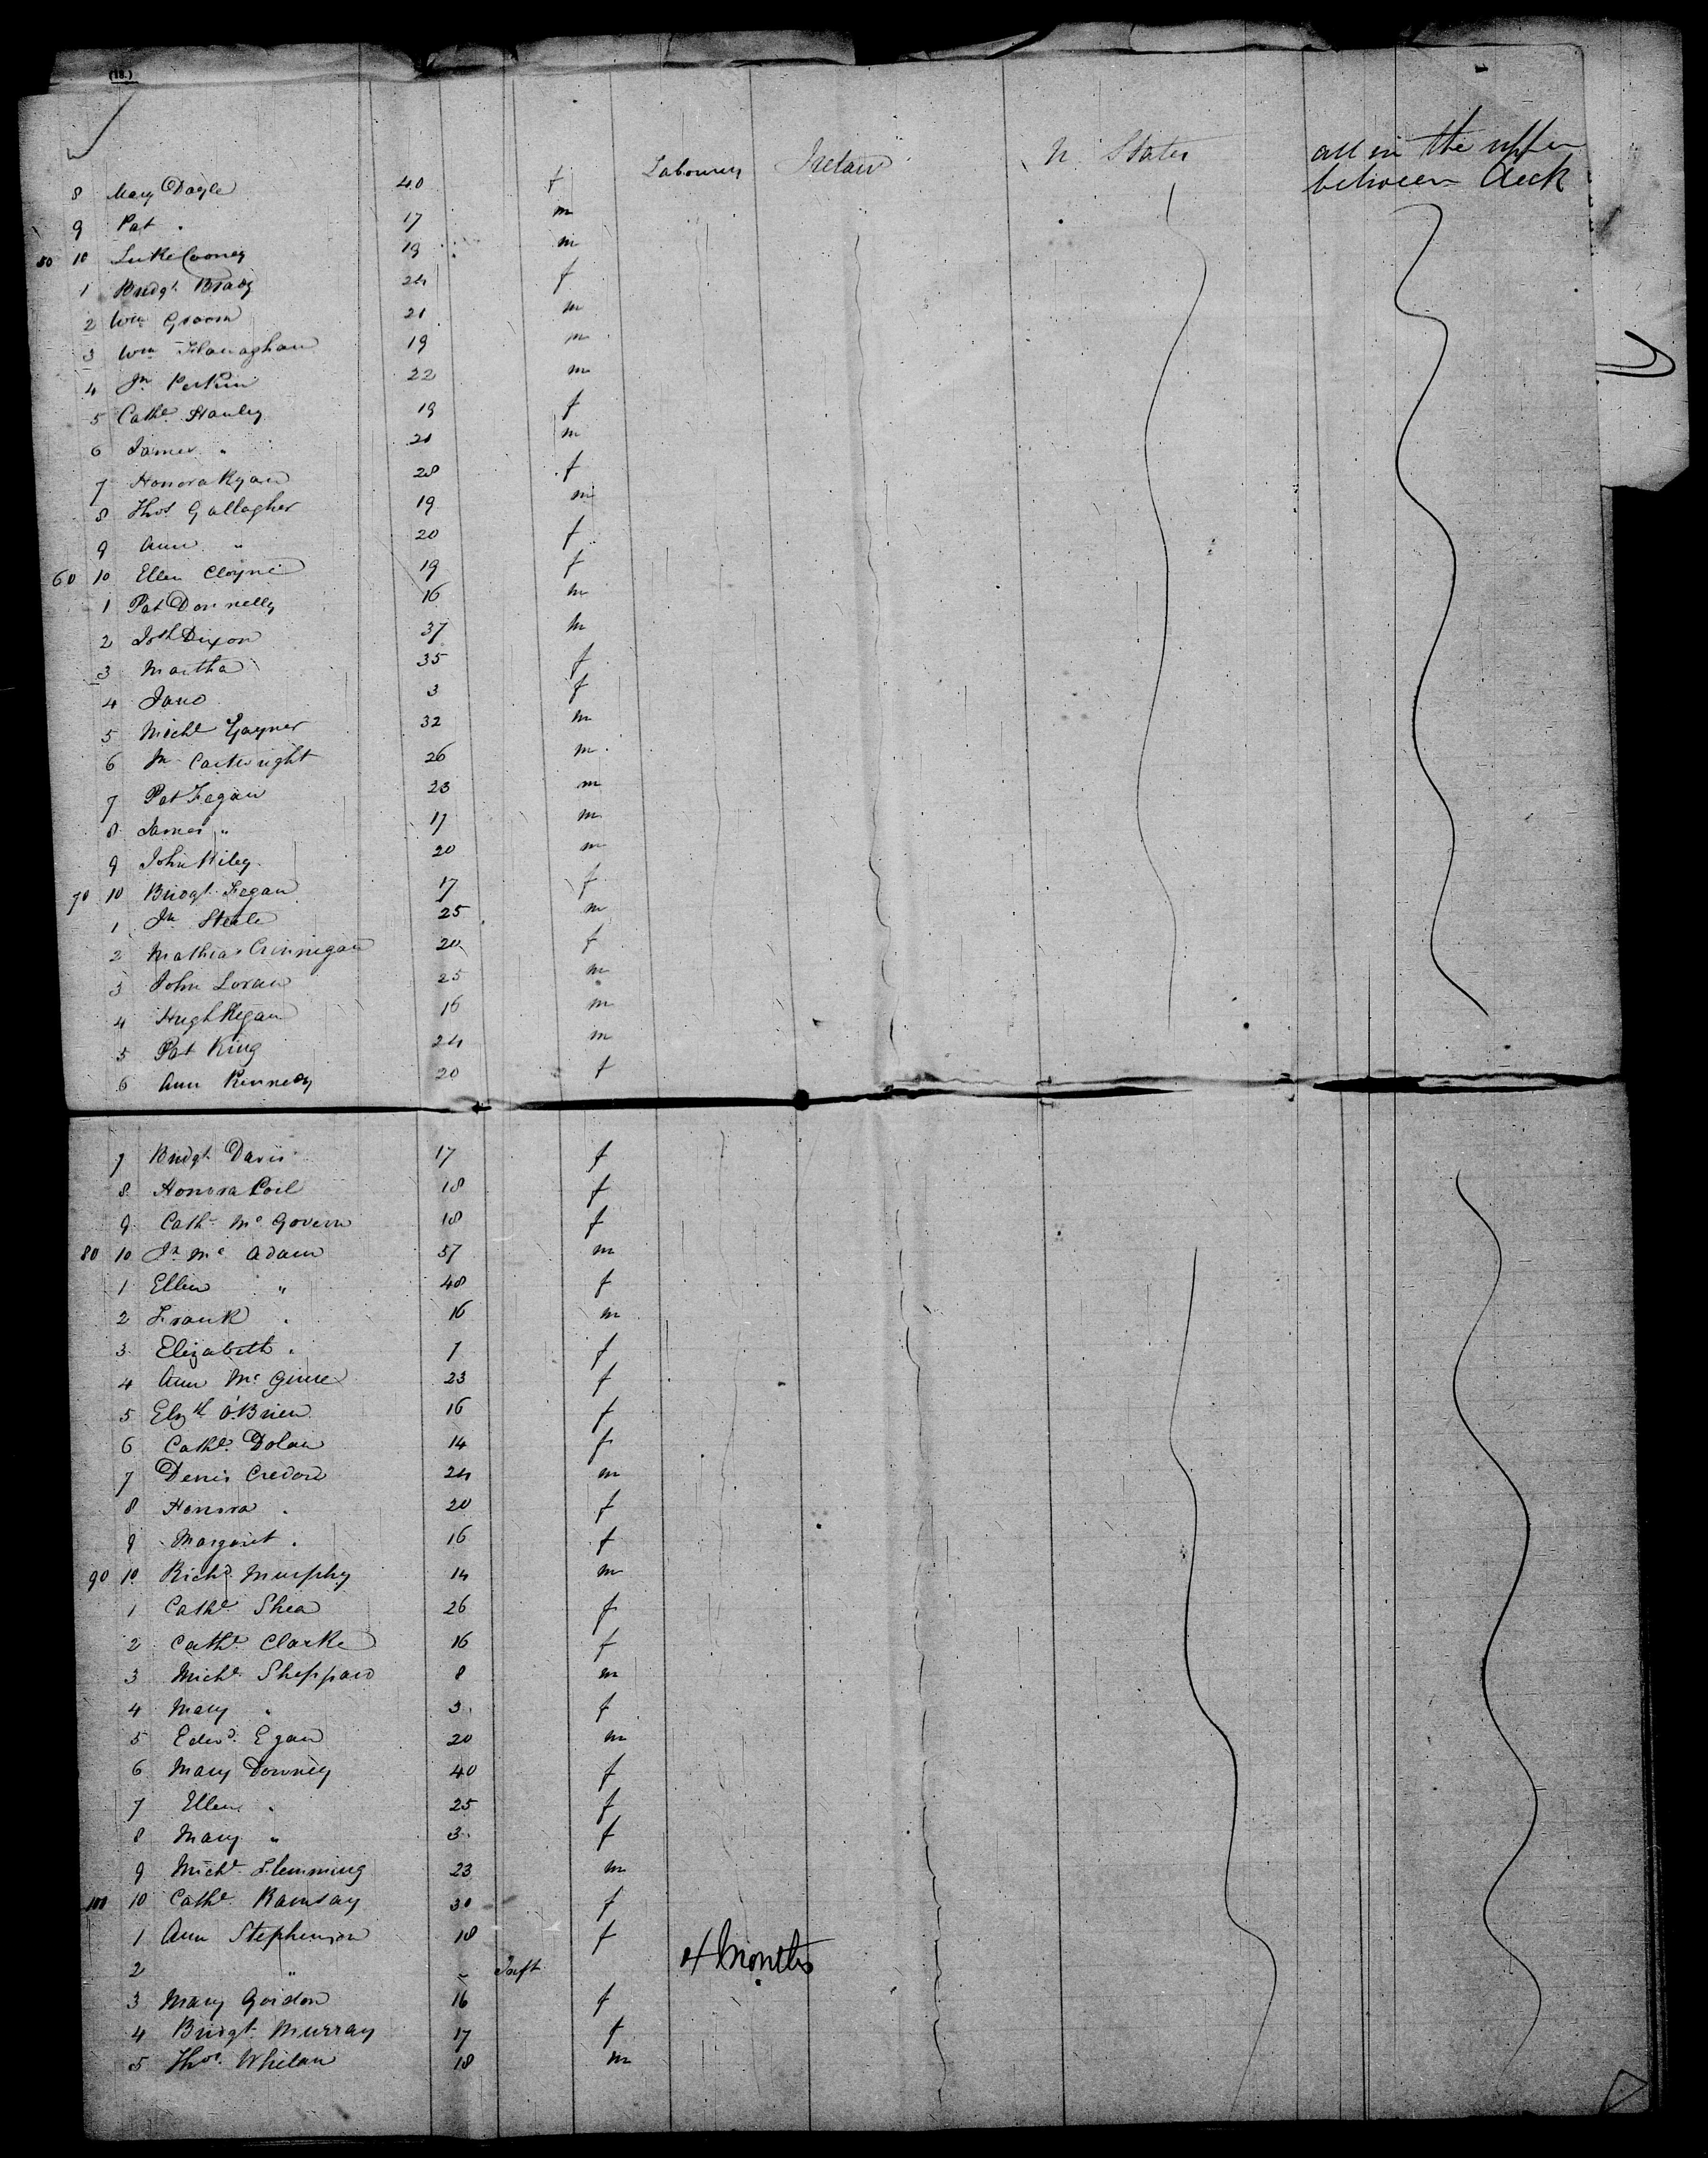 (18.)
Labourers Ireland U States all in the upper
between deck
8 Mary Doyle 40 f
9 Pat " 17 m
50 10 Luke Cooney 19 m
1 Bridgt. Brady 24 f
2 Wm Groom 21 m
3 Wm Flanaghan 19 m
4 Jn Perkin 22 m
5 Cathe. Hanley 19 f
6 James " 21 m
7 Honora Ryan 28 f
8 Thos Gallagher 19 m
9 Ann " 20 f
60 10 Ellen Cloyne 19 f
1 Pat Donnelly 16 m
2 Josh Dixon 37 m
3 Martha 35 f
4 Jane 3 f
5 Michl Gayner 32 m
6 Jn Cartwright 26 m
7 Pat Fegan 23 m
8 James " 17 m
9 John Riley 20 m
70 10 Bridgt. Fegan 17 f
1 Jn Steele 25 m
2 Mathias Crinnegan 20 f
3 John Loran 25 m
4 Hugh Regan 16 m
5 Pat King 24 m
6 Ann Kennedy 20 f
7 Bridgt. Davis 17 f
8 Honora Coil 18 f
9 Cathe Mc Govern 18 f
80 10 Jn Mc Adam 57 m
1 Ellen " 48 f
2 Frank " 16 m
3 Elizabeth " 7 f
4 Ann Mc Guire 23 f
5 Elzth O'Brien 16 f
6 Cathe. Dolan 14 f
7 Denis Credon 24 m
8 Honora " 20 f
9 Margaret " 16 f
90 10 Richd Murphy 14 m
1 Cathe. Shea 26 f
2 Cathe. Clarke 16 f
3 Michl. Sheppard 8 m
4 Mary " 3 f
5 Edwd. Egan 20 m
6 Mary Downey 40 f
7 Ellen " 25 f
8 Mary " 3 f
9 Michl. Flemming 23 m
100 10 Cathe. Ramsay 30 f
1 Ann Stephenson 18 f
2 " - Inft 4 Months
3 Mary Gordon 16 f
4 Bridgt. Murray 17 f
5 Thos. Whelan 18 m